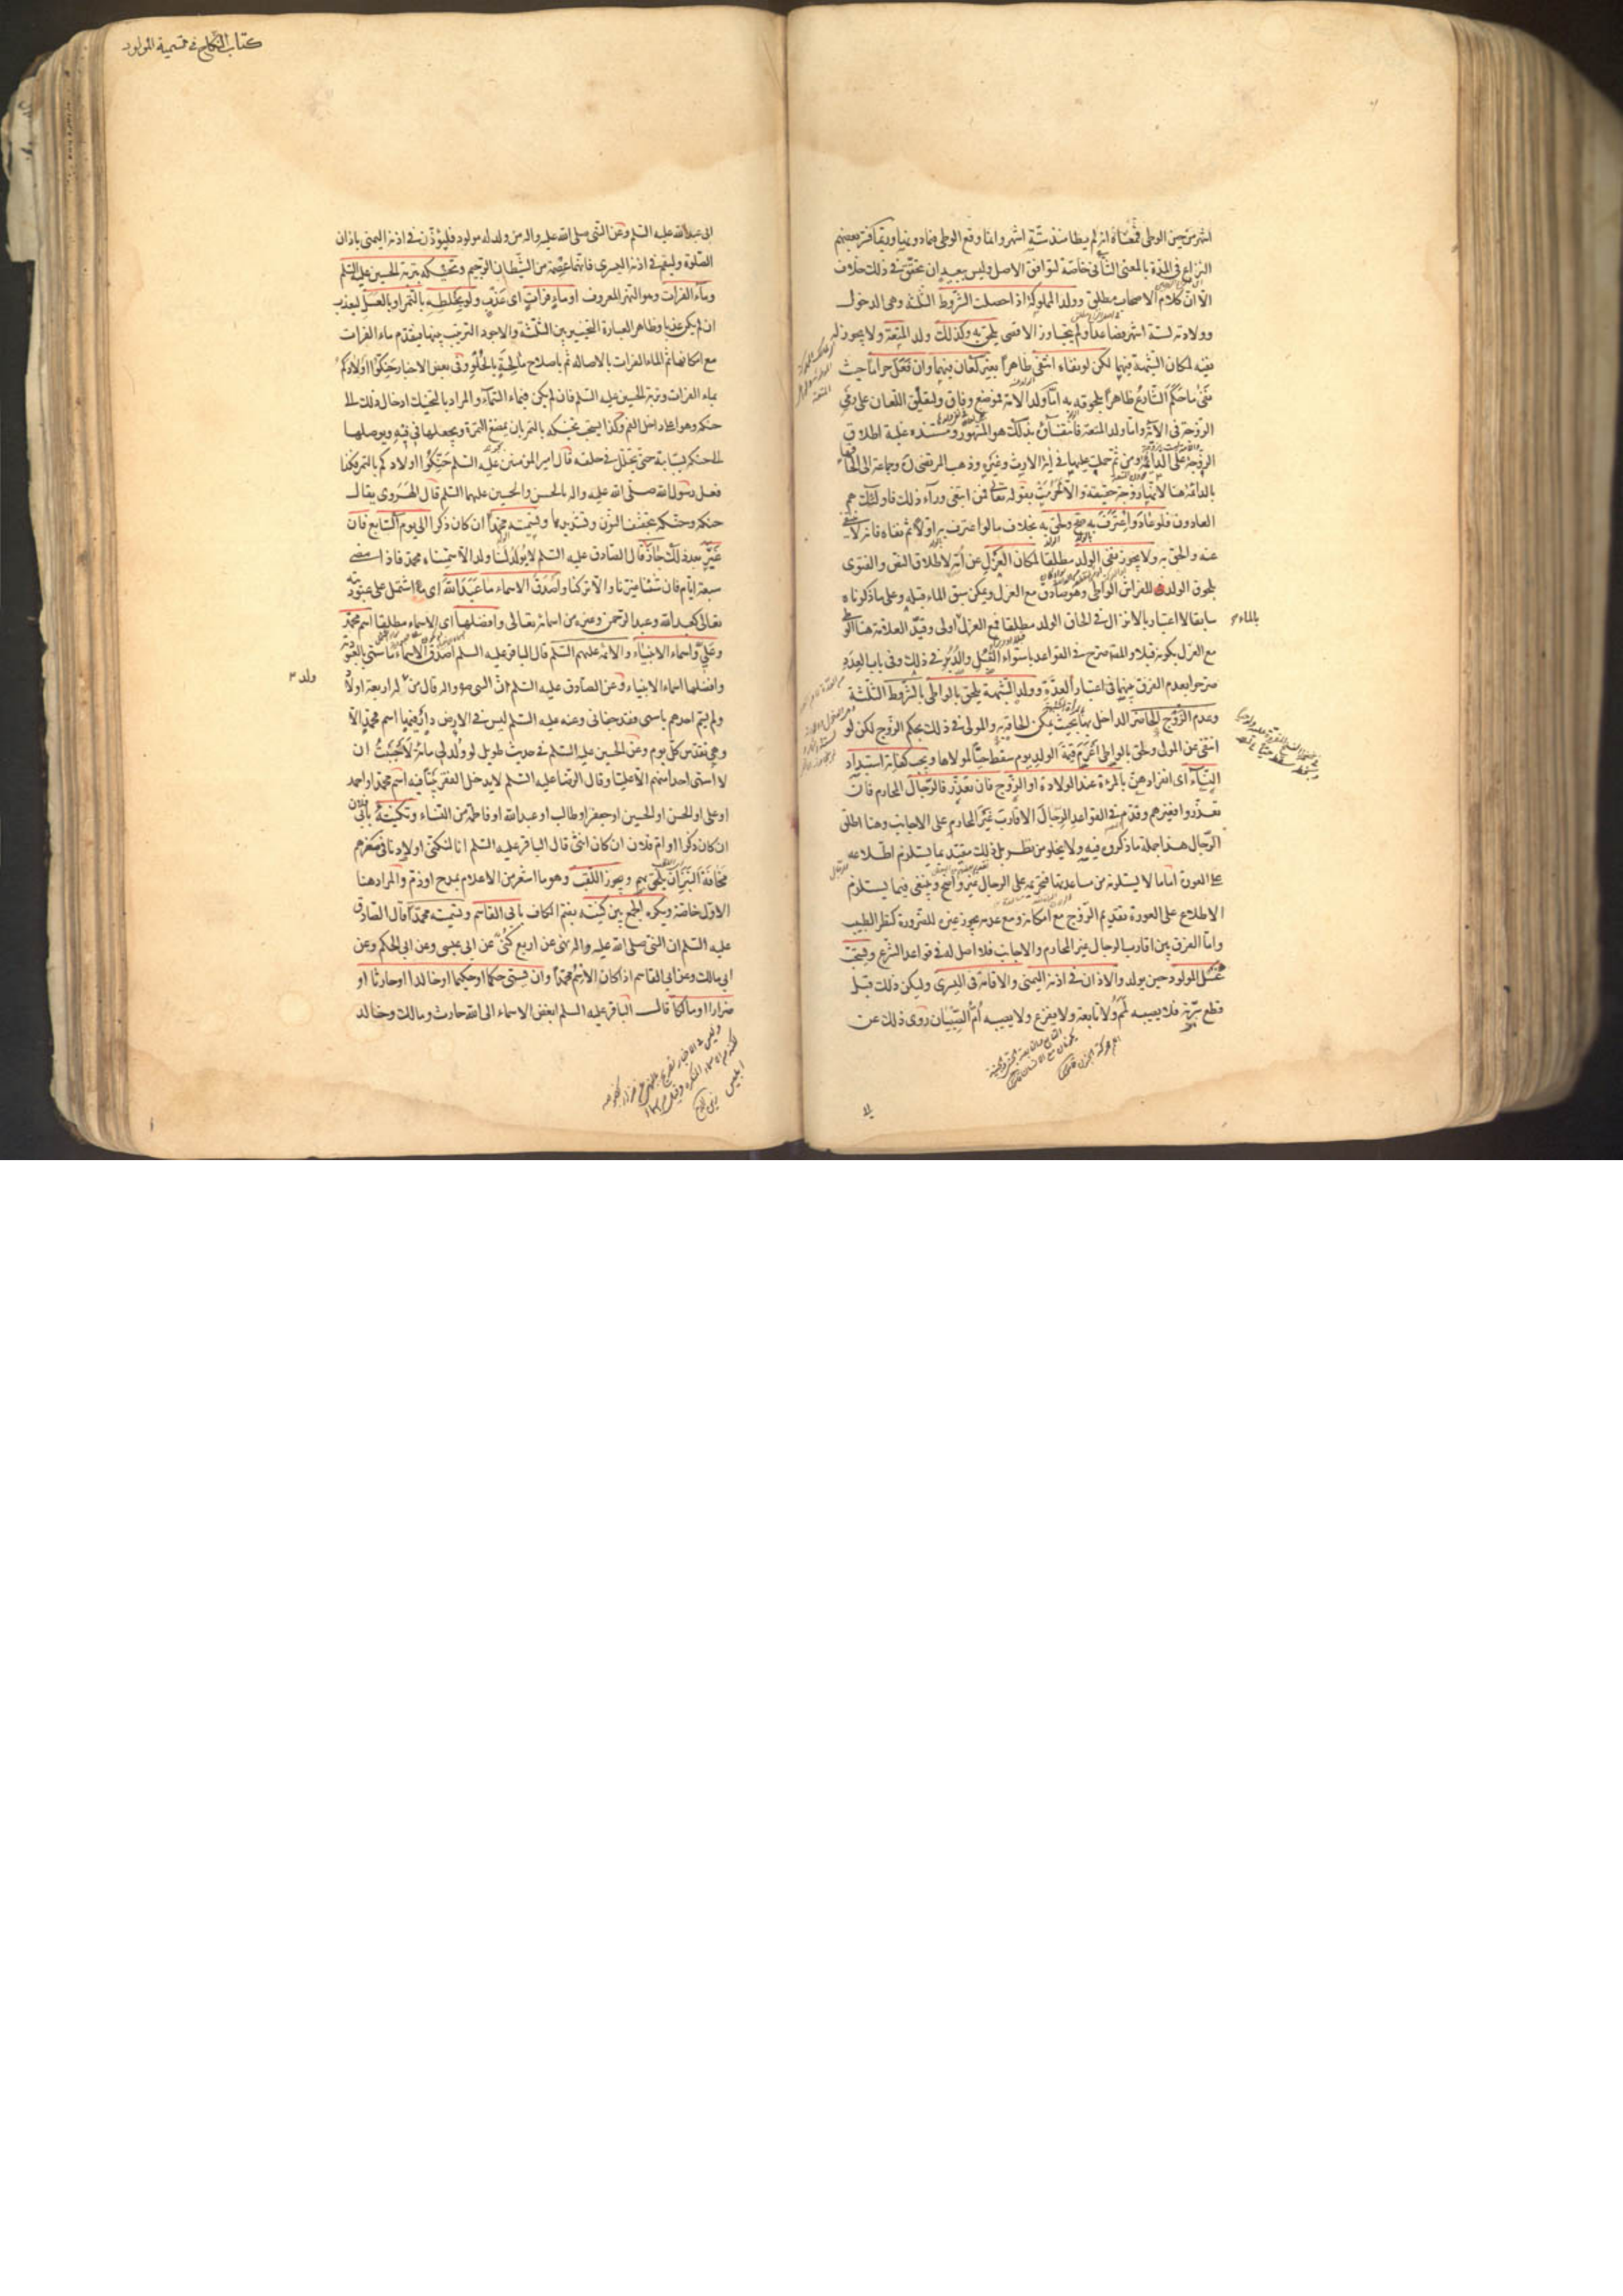 اشهر من حين الوطى فمعناه انه لم يطا منذ ستة اشهر وانما وقع الوطى فيما دونها
النزاع فى المدة بالمعنى الثانى خاصة ليوافق الاصل وليس ببعيد ان تحقق فى ذلك خلاف
الا ان كلام الاصحاب مطلق وولد المملوكة اذا حصلت الشروط الثلثة وهى الدخول
وولادته لستة اشهر فصاعدا ولم يتجاوز الاقصى يلحق به وكذلك ولد المتعة ولا يجوز له
نفيه لمكان الشبهة فيهما لكن لو نفاه انتفى ظاهرا بغير لعان فيهما وان فعل حراما حيث
نفى ما حكم الشارع ظاهرا بلحوقه به اما ولد الامة فموضع وفاق ولتعليق اللعان على رمى
الزوجة فى الآية واما ولد المتعة فانتفاؤه بذلك هو المشهور ومستنده غلبة اطلاق
الزوجة على الدائمة ومن ثم حمل عليها فى آية الارث وغيره وذهب المرتضى ره وجماعة الى الحاقها
بالدائمة هنا لانها زوجة حقيقة والا لحرمت بقوله تعالى فمن ابتغى وراء ذلك فاولئك هم
العادون فلو عاد واعترف به صح ولحق به بخلاف ما لو اعترف به اولا ثم نفاه فانه لا ينتفى
عنه والحق به ولا يجوز نفى الولد مطلقا لمكان العزل عن امه لاطلاق النص والفتوى
بلحوق الولد للفراش الواطى وهو صادق مع العزل ويمكن سبق الماء قبله وعلى ما ذكرناه
سابقا لا اعتبار بالانزال فى الحاق الولد مطلقا فمع العزل اولى وقيد العلامة هنا الوطى
مع العزل بكونه قبلا والمصنف صرح فى القواعد باستواء القبل والدبر فى ذلك وفى باب العدد
صرحوا بعدم الفرق بينهما فى اعتبار العدة وولد الشبهة يلحق بالواطى بالشروط الثلثة
وعدم الزوج الحاضر الداخل بها بحيث يمكن الحاقه به والمولى فى ذلك بحكم الزوج لكن لو
انتفى عن المولى ولحق بالواطى اغرم قيمة الولد يوم سقط حيا لمولاها ويجب كفاية استبداد
النساء اى انفرادهن بالمرءة عند الولادة او الزوج فان تعذر فالرجال المحارم فان
تعذروا فغيرهم وقدم فى القواعد الرجال الاقارب غير المحارم على الاجانب وهنا اطلق
الرجال هذا جملة ما ذكروه فيه ولا يخلو من نظر بل ذلك مقيد بما يستلزم اطلاعه
على العورة اما ما لا يستلزمه من مساعدتها فتحريمه على الرجال غير واضح وينبغى فيما يستلزم
الاطلاع على العورة تقديم الزوج مع امكانه ومع عدمه يجوز غيره للضرورة كنظر الطبيب
واما الفرق بين اقارب الرجال غير المحارم والاجانب فلا اصل له فى قواعد الشرع ويستحب
غسل المولود حين يولد والاذان فى اذنه اليمنى والاقامة فى اليسرى وليكن ذلك قبل
قطع سرته فلا يصيبه لمم ولا تابعة ولا يفزع ولا يصيبه ام الصبيان روى ذلك عن
بالماء
كتاب النكاح فى تسمية المولود
ابى عبد الله عليه السلم وعن النبى صلى الله عليه واله من ولد له مولود فليؤذن فى اذنه اليمنى باذان
الصلوة وليقم فى اذنه اليسرى فانها عصمة من الشيطان الرجيم وتحنيكه بتربة الحسين عليه السلم
وماء الفرات وهو النهر المعروف او ماء فرات اى عذب ولو بخلطه بالتمر او بالعسل ليعذب
ان لم يكن عذبا وظاهر العبارة التخيير بين الثلثة والاجود الترتيب بينها فيقدم ماء الفرات
مع امكانه ثم الماء الفرات بالاصالة ثم باصلاح مالحه بالحلو وفى بعض الاخبار حنكوا اولادكم
بماء الفرات وتربة الحسين عليه السلم فان لم يكن فبماء السماء والمراد بالتحنيك ادخال ذلك الى
حنكه وهو اعلا داخل الفم وكذا يستحب تحنيكه بالتمر بان يمضغ التمرة ويجعلها فى فيه ويوصلها
الى حنكه بسبابته حتى يتحلل فى حلقه قال امير المؤمنين عليه السلم حنكوا اولادكم بالتمر هكذا
فعل رسول الله صلى الله عليه واله بالحسن والحسين عليهما السلم قال الهروى يقال
حنكه وحنكه بتخفيف النون وتشديدها وتسميته محمدا ان كان ذكرا الى يوم السابع فان
غير بعد ذلك جاز قال الصادق عليه السلم لا يولد لنا ولد الا سميناه محمد فاذا مضى
سبعة ايام فان شئنا غيرنا والا تركنا واصدق الاسماء ما عبد الله اى ما اشتمل على عبوديته
تعالى كعبد الله وعبد الرحمن وغيره من اسمائه تعالى وافضلها اى الاسماء مطلقا اسم محمد
وعلى واسماء الانبياء والائمة عليهم السلم قال الباقر عليه السلم اصدق الاسماء ما سمى بالعبودية
وافضلها اسماء الانبياء وعن الصادق عليه السلم ان النبى ص واله قال من له اربعة اولاد
ولم يسم احدهم باسمى فقد جفانى وعنه عليه السلم ليس فى الارض دار فيها اسم محمد الا
وهى تقدس كل يوم وعن الحسين عليه السلم فى حديث طويل لو ولد لى مائة لاحببت ان
لا اسمى احدا منهم الا عليا وقال الرضا عليه السلم لا يدخل الفقر بيتا فيه اسم محمد او احمد
او على او الحسن او الحسين او جعفر او طالب او عبد الله او فاطمة من النساء وتكنيته بابى فلان
ان كان ذكرا او ام فلان ان كان انثى قال الباقر عليه السلم انا لنكنى اولادنا فى صغرهم
مخافة النبز ان يلحق بهم ويجوز اللقب وهو ما اشعر من الاعلام بمدح او ذم والمراد هنا
الاول خاصة ويكره الجمع بين كنيته بضم الكاف بابى القاسم وتسميته محمدا قال الصادق
عليه السلم ان النبى صلى الله عليه واله نهى عن اربع كنى عن ابى عيسى وعن ابى الحكم وعن
ابى مالك وعن ابى القاسم اذا كان الاسم محمدا وان يسمى حكما او حكيما او خالدا او حارثا او
ضرارا او مالكا قال الباقر عليه السلم ابغض الاسماء الى الله حارث ومالك وخالد
ولد